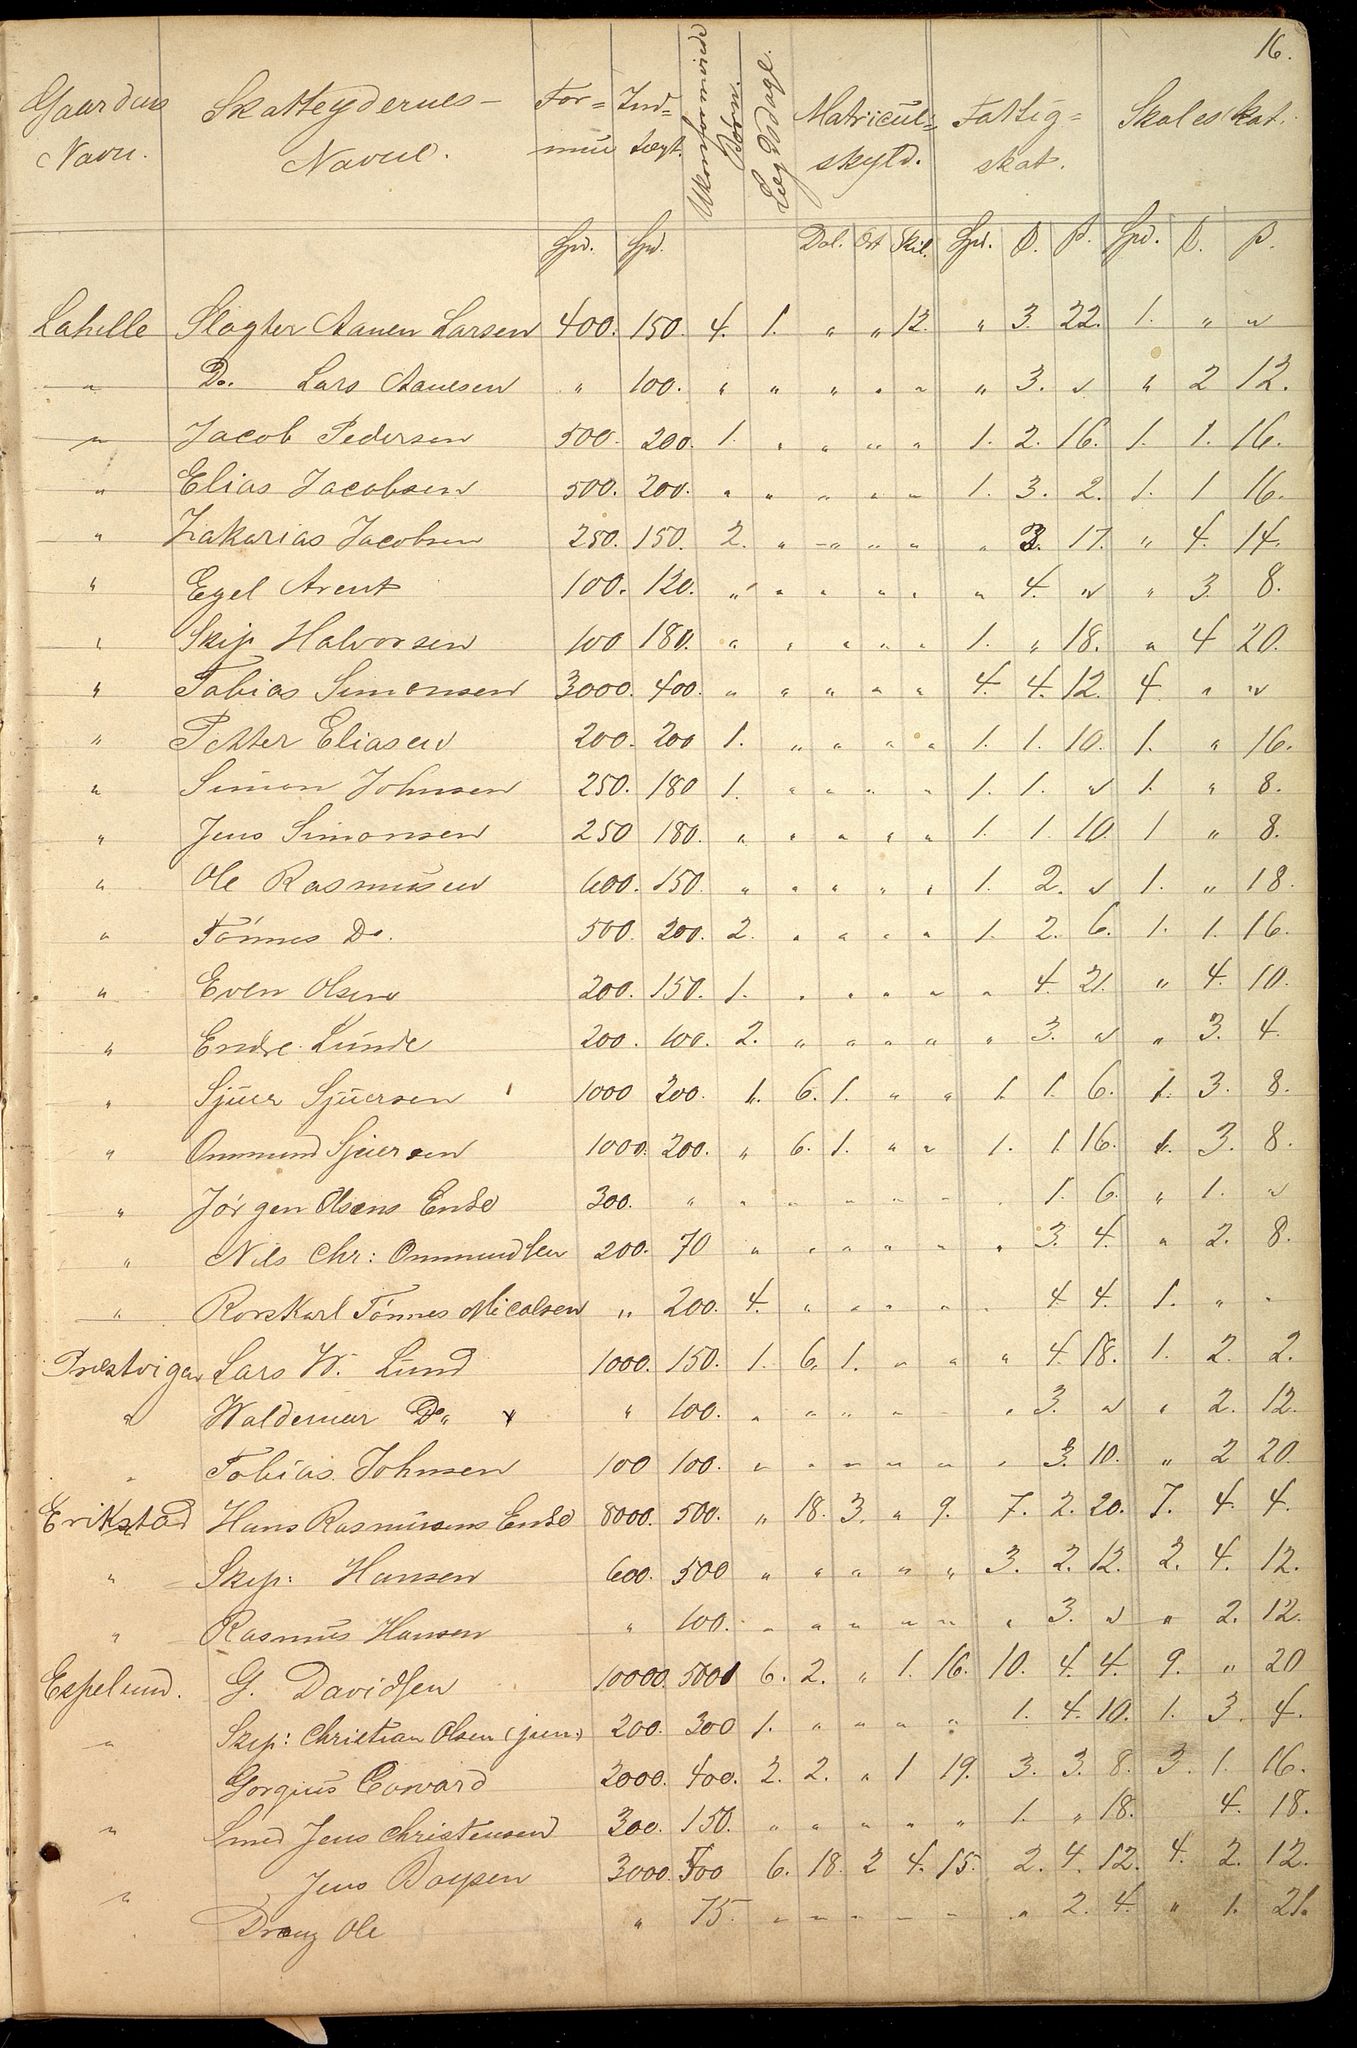 16.
Gaardens Navn. Skatteydernes Navne. Formue Indtægt. Ukonfirmerede Børn. Lægdsdage. Matriculskyld. Fattigskat. Skoleskat.
Spd. Spd. Dal. Ort Skil. Spd. β. Spd. β.
Lahelle Slagter Aanen Larsen 400. 150. 4. 1. " " 12. " 3. 22. 1. " "
" Do. Lars Aanesen " 100. " " " " " " 3. " " 2 12.
" Jacob Pedersen 500. 200. 1. " " " " 1. 2. 16. 1. 1. 16.
" Elias Jacobsen 500. 200. " " " " " 1. 3. 2. 1. 1 16.
" Zakarias Jacobsen 250. 150. 2. " " " " " 3. 17. " 4. 14.
" Egel Arent 100. 120. " " " " " " 4. " " 3. 8.
" Skip Halvorsen 100 180. " " " " " 1. " 18. " 4 20.
" Tobias Simonsen 3000. 400. " " " " " 4. 4. 12. 4. " "
" Petter Eliasen 200. 200 1. " " " " 1. 1. 10. 1. " 16.
" Simon Johnsen 250. 180 1. " " " " 1. 1. " 1. " 8.
" Jens Simonsen 250 180. " " " " " 1. 1. 10. 1 " 8.
" Ole Rasmusen 600. 150. " " " " " 1. 2. " 1. " 18.
" Tönnes Do. 500. 200. 2. " " " " 1. 2. 6. 1. 1. 16.
" Even Olsen 200. 150. 1. " " " " " 4. 21. " 4. 10.
" Endre Lunde 200. 100. 2. " " " " " 3. " " 3. 4.
" Sjuer Sjuersen 1000 200. 1. 6. 1. " " 1. 1. 6. 1. 3. 8.
" Ommund Sjuersen 1000. 200. " 6. 1. " " 1. 1. 16. 1. 3. 8.
" Jörgen Olsens Enke 300. " " " " " " " 1. 6. " 1. "
" Nils Chr: Ommundsen 200. 70 " " " " " " 3. 4. " 2. 8.
" Rorskarl Tönnes Micalsen " 200. 4. " " " " " 4. 4. 1. " "
Præstvigen Lars W. Lund 1000. 150. 1. 6. 1. " " " 4. 18. 1. 2. 2.
" Waldemar Do. " 100. " " " " " 3. " " 2. 12.
" Tobias Johnsen 100 100. " " " " " " 3. 10. " 2 20.
Erikstad Hans Rasmusens Enke 8000. 500. " 18. 3. " 9. 7. 2. 20. 7. 4. 4.
" Skip: Hansen 600. 500 " " " " " 3. 2. 12. 2. 4. 12.
" Rasmus Hansen " 100. " " " " " " 3. " " 2. 12.
Espelund. G. Davidsen 10000. 500 6. 2. " 1. 16. 10. 4. 4. 9. " 20
" Skip: Christian Olsen (jun) 200. 300 1. " " " " 1. 4. 10. 1. 3. 4.
Gorgius Corvard 2000. 400. 2. 2. " 1 19. 3. 3. 8. 3. 1. 16.
" Smed Jens Christensen 300. 150. " " " " " 1. " 18. 4. 18.
Jens Boysen 3000. 500 6. 18. 2 4. 15. 2. 4. 12. 4. 2. 12.
" Dreng Ole " 75. " " " " " " 2. 4. " 1. 21.